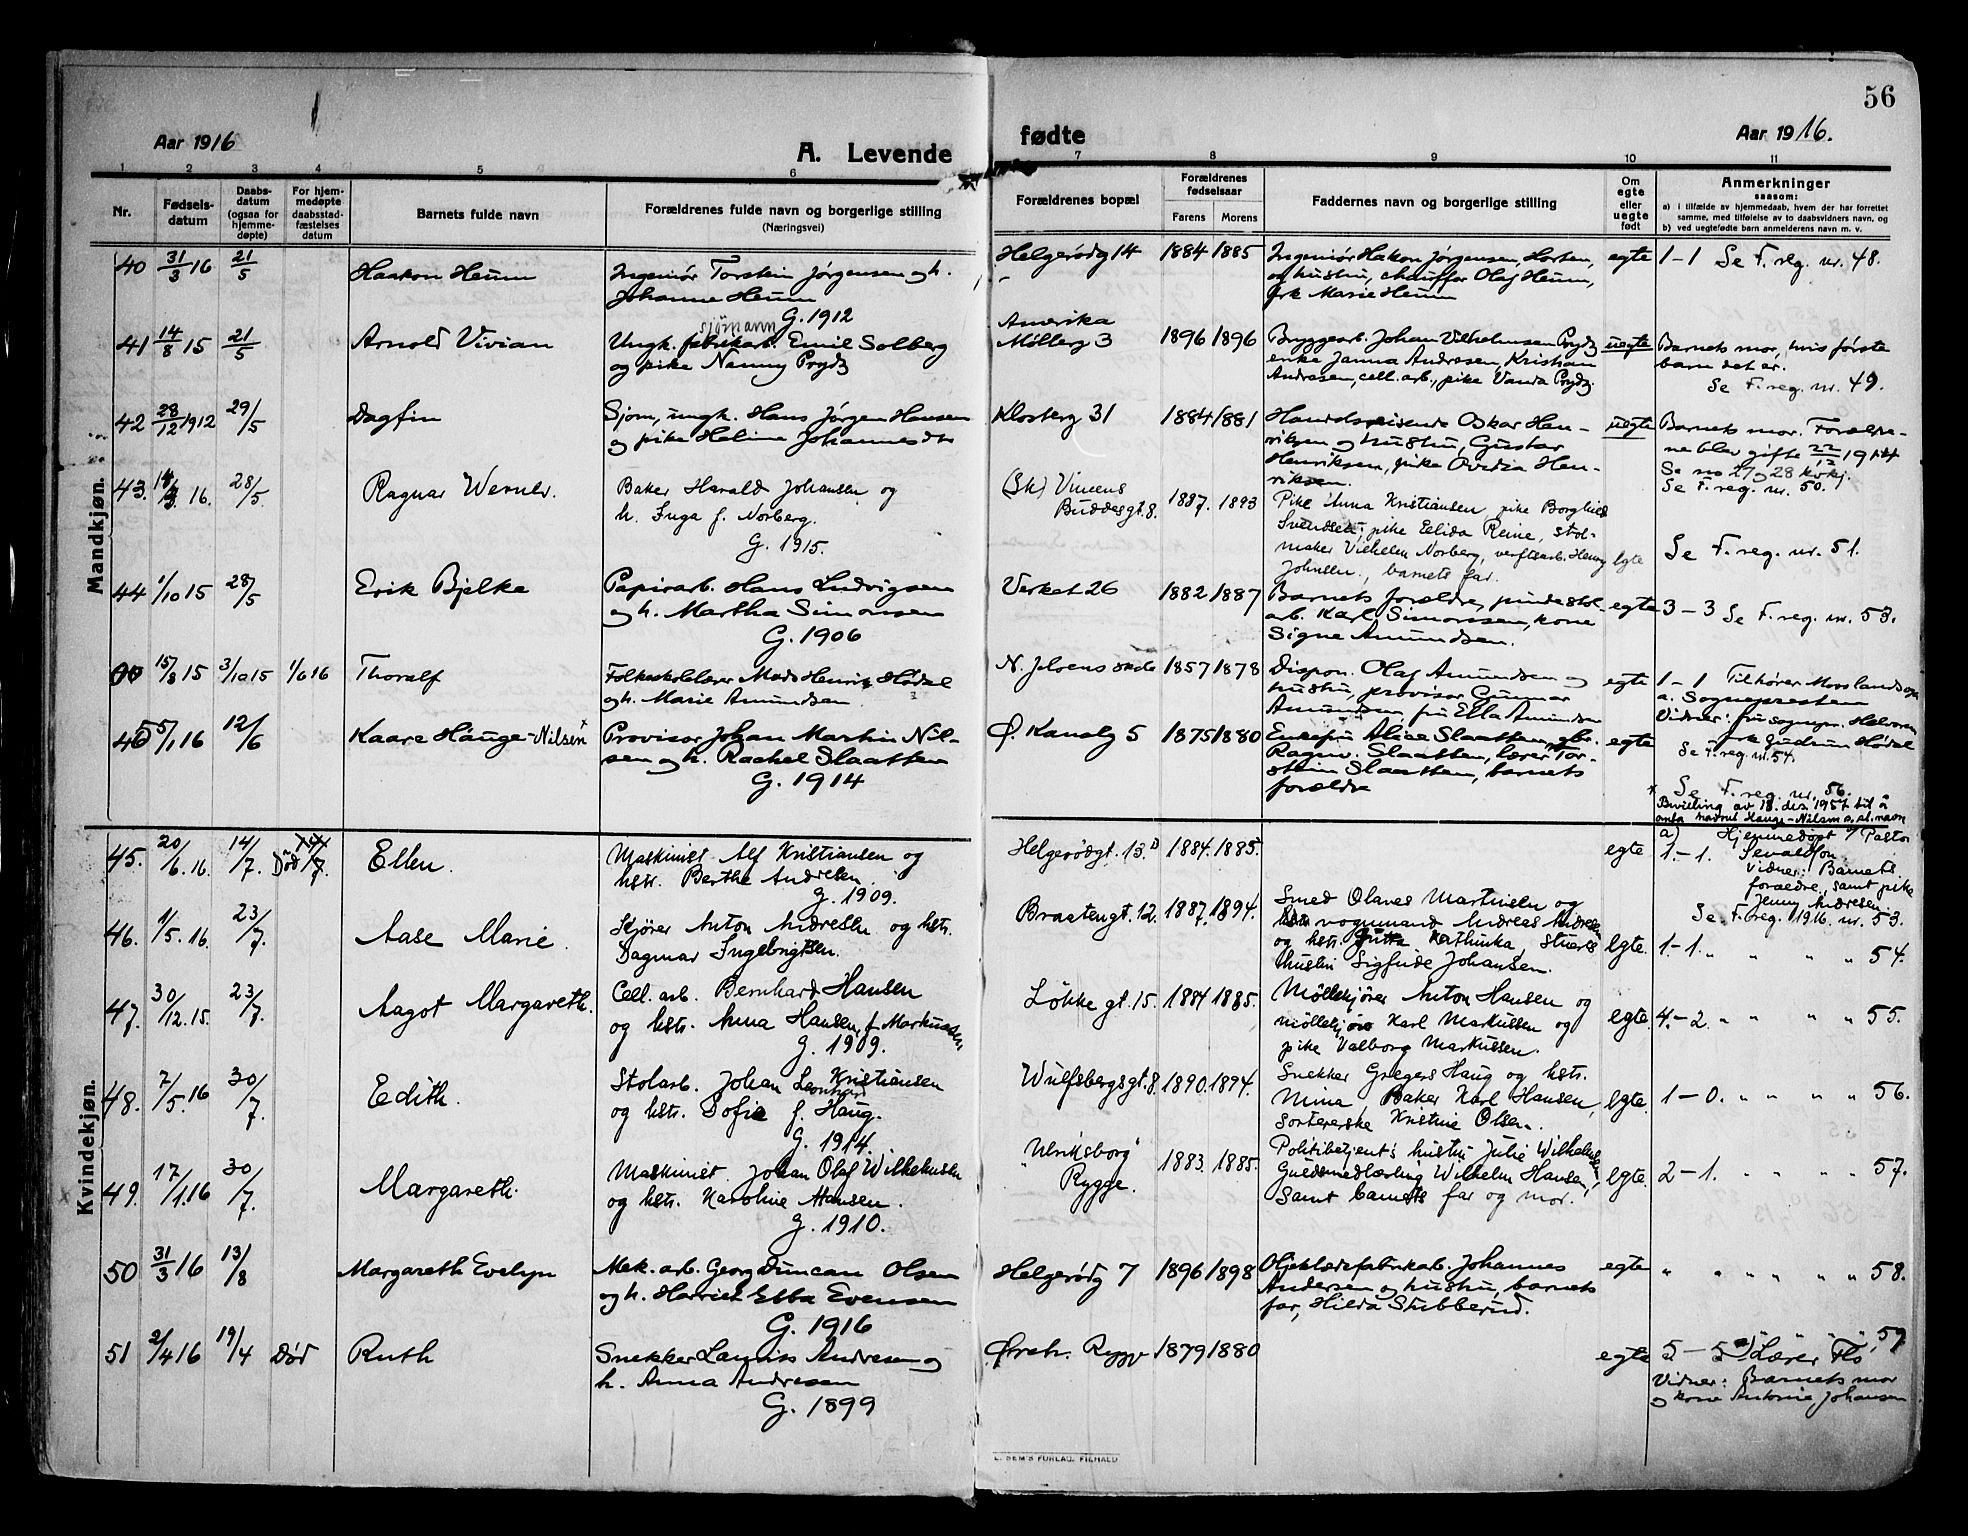 56
Aar 1916
A. Levende
fødte
Aar 1916.
1 2 3 4 5 6 7 8 9 10 11
Nr.
Fødsels-
datum
Daabs-
datum
(ogsaa for
hjemme-
døpte)
For hjem-
medøpte
daabsstad-
fæstelses
datum
Barnets fulde navn
Forældrenes fulde navn og borgerlige stilling
(Næringsvei)
Forældrenes bopæl
Forældrenes
fødselsaar
Farens Morens
Faddernes navn og borgerlige stilling
Om
egte
eller
uegte
født
Anmerkninger
saasom:
a) i tilfælde av hjemmedaab, hvem der har forrettet
samme, med tilføielse av to daabsvidners navn, og
b) ved uegtefødte barn anmelderens navn m. v.
Mandkjøn.
40 31/3 16 21/5 Haakon Heum
Ingeniør Torstein Jørgensen og h.
Johanne Heum
G. 1912
Helgerødg 14 1884 1885
Ingeniør Hakon Jørgensen, Horten,
og hustru, chauffør Olaf Heum,
frk Marie Heum
egte 1-1 Se F. reg. nr. 48.
41 14/8 15 21/5 Arnold Vivian
sjømann
Ungk. fabrikarb. Emil Solberg
og pike Nanny Prydz
Amerika
Møllerg 3 1896 1896
Bryggearb. Johan Vilhelmsen Prydz
enke Janna Andresen, Kristian
Andresen, cell. arb., pike Vanda Prydz.
uegte
Barnets mor, hvis første
barn det er.
Se F. reg. nr. 49.
42 28/12 1912 29/5 Dagfin
Sjøm, ungk. Hans Jørgen Hansen
og pike Heline Johannesdtr
Klosterg 31 1884 1881
Handelsreisende Oskar Hen-
riksen og hustru, Gustav
Henriksen, pike Ovedia Hen-
riksen.
uegte
Barnets mor. Forældre-
ne blev gifte 22/12 1914
Se no 27 og 28 kirkj.
Se F. reg. nr. 50.
43. 16. 28/5 Ragnar Werner.
Baker Harald Johansen og
h. Inga f. Norberg.
G. 1915.
(Sk) Vincens
Buddesgt. 8. 1887. 1893
Pike Anna Kristiansen, pike Borghild
Svendsen, pike Elida Reine, stol-
maker Vilhelm Norberg, verftsarb. Henry
Johnsen, barnets far.
egte Se F. reg. nr. 51.
44 1/10 15 28/5 Erik Bjelke
Papirarb. Hans Ludvigsen
og h. Martha Simonsen
G. 1906
Verket 26 1882 1887
Barnets forældre, pindestol-
arb. Karl Simonsen, kone
Signe Amundsen.
egte 3-3 Se F. reg. nr. 53.
00 15/8 15 3/10 15 1/6 16 Thoralf
Folkeskolelærer Mads Henrik Hødal
og h. Marie Amundsen
N. Jeloens skole 1857 1878
Dispon. Olaf Amundsen og
hustru, provisor Gunnar
Amundsen, frk Ella Amundsen
egte 1-1 Tilhører Moss landsogn
a. Sognepresten
Vidner: fru sognepr. Halvorsen
frk Gudrun Hødal
Se F. reg. nr. 54.
45 5/1 16 12/6 Kaare Hauge-Nilsen *
Provisor Johan Martin Nil-
sen og h. Rachel Slaatten
G. 1914
Ø. Kanalg 5 1875 1880
Enkefru Alice Slaatten, gbr.
Ragnv. Slaatten, lærer Tor-
stein Slaatten, barnets
forældre
egte
Se F. reg. nr. 56.
* Bevilling av 18. des. 1957 til å
anta navnet Hauge-Nilsen s. sl.navn
Kvindekjøn.
45. 20/6. 16. 14/7. Død 14/7 Ellen.
Maskinist Alf Kristiansen og
hstr. Berthe Andresen.
G. 1909.
Helgerødgt. 13. 1884. 1885.
egte 1.-1.
a) Hjemmedøpt v/ Pastor
Sevaldson
Vidner: Barnets
forældre, samt pike
Jenny Andresen.
Se F. reg. 1916. nr. 53.
46. 1/5. 16. 23/7. Aase Marie.
Kjører Anton Andresen og hstr.
Dagmar Ingebrigtsen.
Braatengt. 12. 1887. 1894.
Smed Olaves Martinsen og
vognmand Andreas Andresen
og hstr. Kathinka, stuerts
hustru Sigfride Johansen.
egte. 1-1. " " " " 54.
47. 30/12. 15. 23/7. Aagot Margareth.
Cell. arb. Bernhard Hansen
og hstr. Anna Hansen, f. Markussen
G. 1909.
Løkkegt. 15. 1884 1885.
Møllekjører Anton Hansen og
møllekjører Karl Markussen og
pike Valborg Markussen.
egte. 4.-2. " " " " 55.
48. 7/5. 16 30/7. Edith.
Stolarb. Johan Leonhard Kristiansen
og hstr. Sofie f. Haug.
G. 1914.
Wulfsbergsgt. 8. 1890. 1894.
Snekker Gregers Haug og hstr.
Mina, Baker Karl Hansen,
sortererske Kristine Olsen.
egte. 1-0. " " " " 56.
49. 17/1. 16 30/7. Margareth.
Maskinist Johan Olaf Wilhelmsen
og hstr. Karoline Hansen.
G. 1910.
"Ulriksborg"
Rygge. 1883. 1885.
Politibetjents hustru Julie Wilhelmsen,
Guldsmedlærling Wilhelm Hansen,
samt barnets far og mor.
egte. 2-1. " " " " 57.
50 31/3 16 13/8 Margareth Evelyn
Mek. arb. Georg Duncan Olsen
og h. Harriet Ebba Evensen
G. 1916
Helgerødg 7 1896 1898
Oljeklædefabrikarb. Johannes
Andersen og hustru, barnets
far, Hilda Stubberud.
egte " " " " " " 58.
51 2/4 16 19/4 Død Ruth
Snekker Laurits Andresen og
h. Anna Andresen
G. 1899
Øreh. Rygge 1879 1880
egte 5-5 a) Lærer Flo 59
Vidner: Barnets mor
og kone Antonie Johansen
E. SEM'S FORLAG, F.HALD